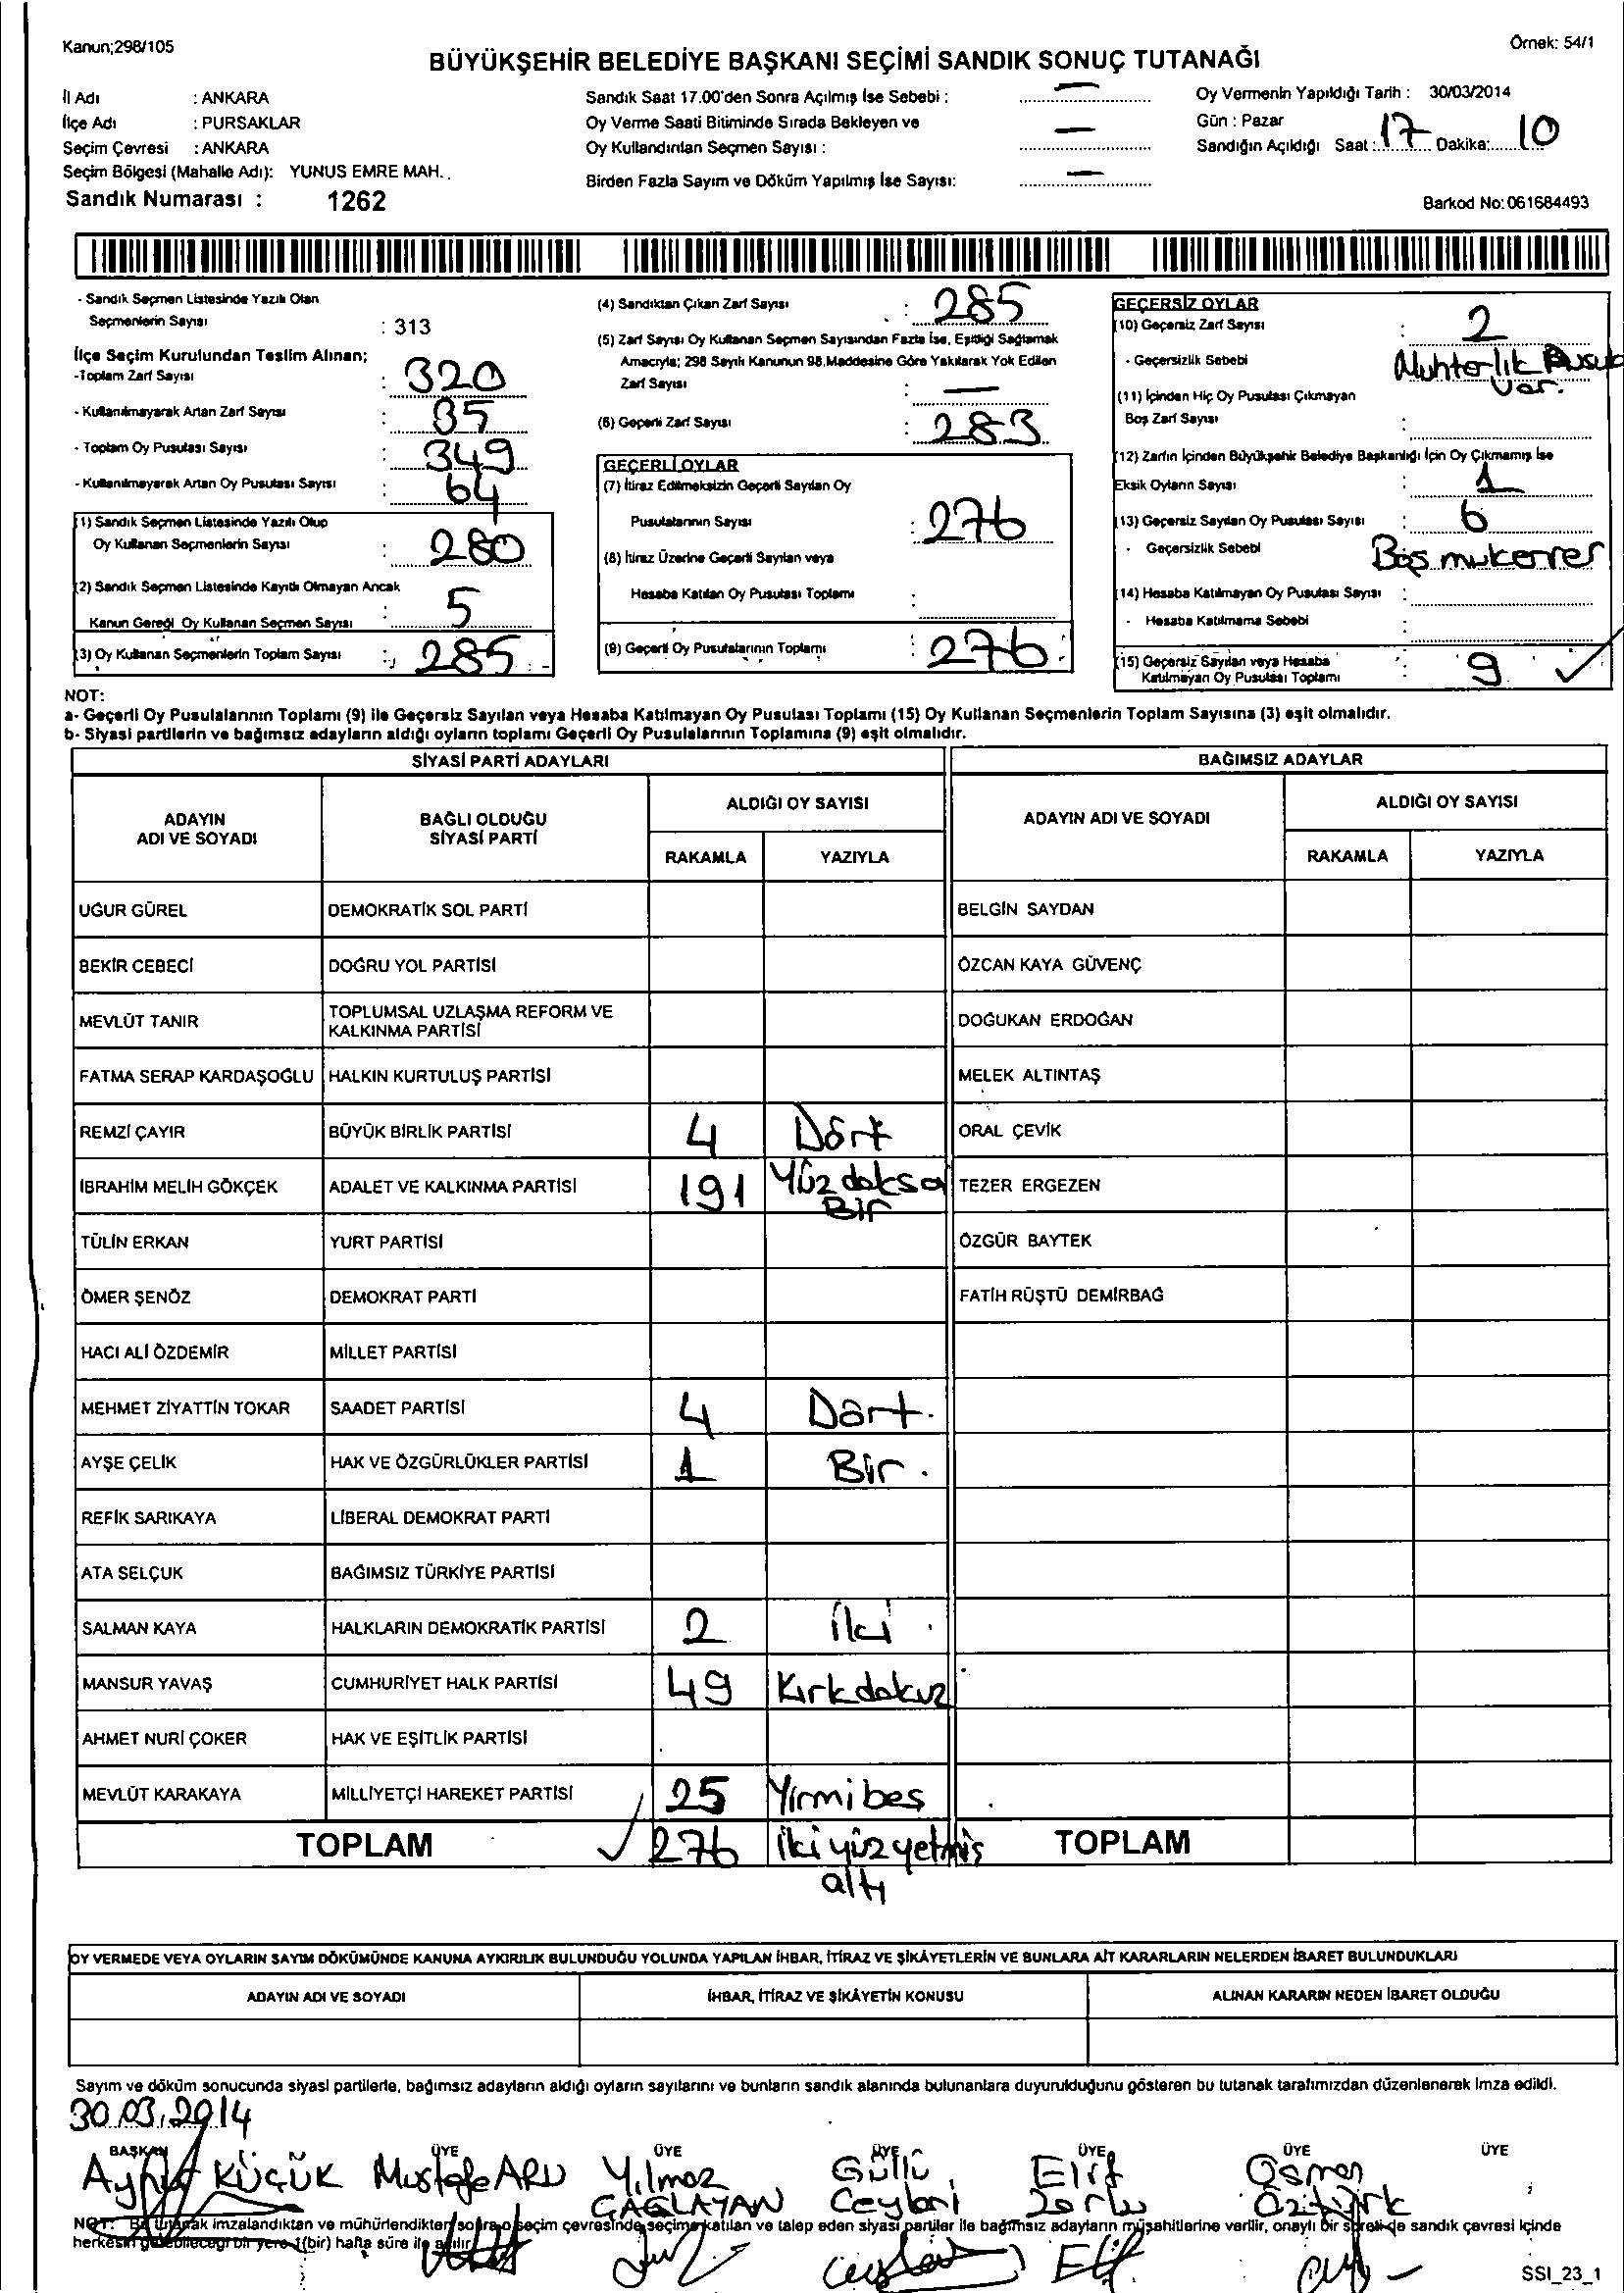 Kanun;298/105
Örnek: 54/1
BÜYÜKŞEHİR BELEDİYE BAŞKANI SEÇİMİ SANDIK SONUÇ TUTANAĞI
İl Adı : ANKARA
İlçe Adı : PURSAKLAR
Seçim Çevresi : ANKARA
Seçim Bölgesi (Mahalle Adı): YUNUS EMRE MAH. .
Sandık Numarası : 1262
Sandık Saat 17.00'den Sonra Açılmış İse Sebebi : —
Oy Verme Saati Bitiminde Sırada Bekleyen ve
Oy Kullandırılan Seçmen Sayısı : —
Birden Fazla Sayım ve Döküm Yapılmış İse Sayısı: —
Oy Vermenin Yapıldığı Tarih : 30/03/2014
Gün : Pazar
Sandığın Açıldığı Saat : 17 Dakika: 10
Barkod No: 061684493
- Sandık Seçmen Listesinde Yazılı Olan
Seçmenlerin Sayısı : 313
İlçe Seçim Kurulundan Teslim Alınan;
-Toplam Zarf Sayısı : 320
- Kullanılmayarak Artan Zarf Sayısı : 35
- Toplam Oy Pusulası Sayısı : 349
- Kullanılmayarak Artan Oy Pusulası Sayısı : 64
(1) Sandık Seçmen Listesinde Yazılı Olup
Oy Kullanan Seçmenlerin Sayısı : 280
(2) Sandık Seçmen Listesinde Kayıtlı Olmayan Ancak
Kanun Gereği Oy Kullanan Seçmen Sayısı : 5
(3) Oy Kullanan Seçmenlerin Toplam Sayısı : 285
(4) Sandıktan Çıkan Zarf Sayısı : 285
(5) Zarf Sayısı Oy Kullanan Seçmen Sayısından Fazla İse, Eşitliği Sağlamak
Amacıyla; 298 Sayılı Kanunun 98.Maddesine Göre Yakılarak Yok Edilen
Zarf Sayısı : —
(6) Geçerli Zarf Sayısı : 283
GEÇERLİ OYLAR
(7) İtiraz Edilmeksizin Geçerli Sayılan Oy
Pusulalarının Sayısı : 276
(8) İtiraz Üzerine Geçerli Sayılan veya
Hesaba Katılan Oy Pusulası Toplamı :
(9) Geçerli Oy Pusulalarının Toplamı : 276
GEÇERSİZ OYLAR
(10) Geçersiz Zarf Sayısı : 2
- Geçersizlik Sebebi : Muhtarlık
var.
(11) İçinden Hiç Oy Pusulası Çıkmayan
Boş Zarf Sayısı :
(12) Zarfın İçinden Büyükşehir Belediye Başkanlığı İçin Oy Çıkmamış İse
Eksik Oyların Sayısı : 1
(13) Geçersiz Sayılan Oy Pusulası Sayısı : 6
- Geçersizlik Sebebi Boş mukerrer
(14) Hesaba Katılmayan Oy Pusulası Sayısı :
- Hesaba Katılmama Sebebi
(15) Geçersiz Sayılan veya Hesaba
Katılmayan Oy Pusulası Toplamı : 9
NOT:
a- Geçerli Oy Pusulalarının Toplamı (9) ile Geçersiz Sayılan veya Hesaba Katılmayan Oy Pusulası Toplamı (15) Oy Kullanan Seçmenlerin Toplam Sayısına (3) eşit olmalıdır.
b- Siyasi partilerin ve bağımsız adayların aldığı oyların toplamı Geçerli Oy Pusulalarının Toplamına (9) eşit olmalıdır.
SİYASİ PARTİ ADAYLARI BAĞIMSIZ ADAYLAR
ADAYIN ADI VE SOYADI BAĞLI OLDUĞU SİYASİ PARTİ ALDIĞI OY SAYISI ADAYIN ADI VE SOYADI ALDIĞI OY SAYISI
RAKAMLA YAZIYLA RAKAMLA YAZIYLA
UĞUR GÜREL DEMOKRATİK SOL PARTİ BELGİN SAYDAN
BEKİR CEBECİ DOĞRU YOL PARTİSİ ÖZCAN KAYA GÜVENÇ
MEVLÜT TANIR TOPLUMSAL UZLAŞMA REFORM VE KALKINMA PARTİSİ DOĞUKAN ERDOĞAN
FATMA SERAP KARDAŞOĞLU HALKIN KURTULUŞ PARTİSİ MELEK ALTINTAŞ
REMZİ ÇAYIR BÜYÜK BİRLİK PARTİSİ 4 Dört ORAL ÇEVİK
İBRAHİM MELİH GÖKÇEK ADALET VE KALKINMA PARTİSİ 191 Yüz doksa Bir TEZER ERGEZEN
TÜLİN ERKAN YURT PARTİSİ ÖZGÜR BAYTEK
ÖMER ŞENÖZ DEMOKRAT PARTİ FATİH RÜŞTÜ DEMİRBAĞ
HACI ALİ ÖZDEMİR MİLLET PARTİSİ
MEHMET ZİYATTİN TOKAR SAADET PARTİSİ 4 Dört.
AYŞE ÇELİK HAK VE ÖZGÜRLÜKLER PARTİSİ 1 Bir.
REFİK SARIKAYA LİBERAL DEMOKRAT PARTİ
ATA SELÇUK BAĞIMSIZ TÜRKİYE PARTİSİ
SALMAN KAYA HALKLARIN DEMOKRATİK PARTİSİ 2 İki .
MANSUR YAVAŞ CUMHURİYET HALK PARTİSİ 49 Kırkdokuz
AHMET NURİ ÇOKER HAK VE EŞİTLİK PARTİSİ
MEVLÜT KARAKAYA MİLLİYETÇİ HAREKET PARTİSİ 25 Yirmibeş
TOPLAM 276 İkiyüzyetmiş altı TOPLAM
OY VERMEDE VEYA OYLARIN SAYIM DÖKÜMÜNDE KANUNA AYKIRILIK BULUNDUĞU YOLUNDA YAPILAN İHBAR, İTİRAZ VE ŞİKÂYETLERİN VE BUNLARA AİT KARARLARIN NELERDEN İBARET BULUNDUKLARI
ADAYIN ADI VE SOYADI İHBAR, İTİRAZ VE ŞİKÂYETİN KONUSU ALINAN KARARIN NEDEN İBARET OLDUĞU
Sayım ve döküm sonucunda siyasi partilerle, bağımsız adayların aldığı oyların sayılarını ve bunların sandık alanında bulunanlara duyurulduğunu gösteren bu tutanak tarafımızdan düzenlenerek imza edildi.
30.03.2014
BAŞKAN ÜYE ÜYE ÜYE ÜYE ÜYE ÜYE
KÜÇÜK Mustafa Yılmaz Güllü Elif Osman
ÇAĞLAYAN Ceylani Öztürk
NOT: Bu tutanak imzalandıktan ve mühürlendikten sonra seçim çevresinde seçime katılan ve talep eden siyasi partiler ile bağımsız adayların müşahitlerine verilir, onaylı bir sureti de sandık çevresi içinde
herkesin görebileceği bir yere 1(bir) hafta süre ile asılır.
SSI_23_1